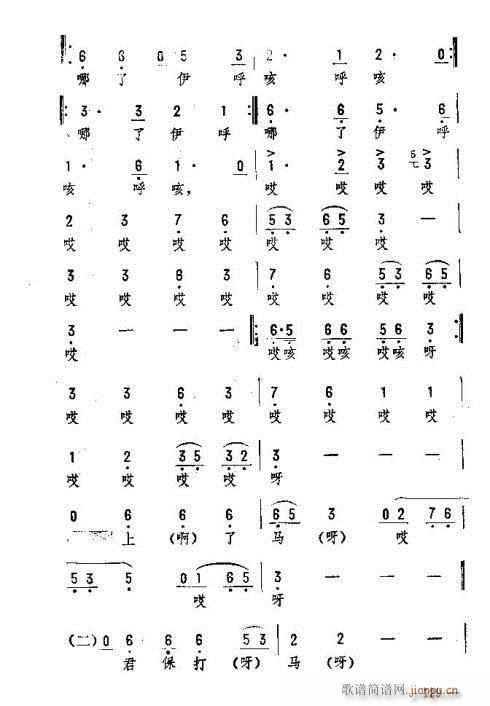 6 6 0 5 3 | 2· 1 2· 0
哪了伊呼咳呼咳
3· 3 2 1 6· 6 5· 3
哪了伊呼哪了伊呼
1· 6 1· 0 | 1· 2 3 3
咳呼咳,哎哎哎哎
2 3 7 6 | 5 3 6 5 3 —
哎哎哎哎哎哎哎
3 3 6 3 | 7 6 5 3 6 5
哎哎哎哎哎哎哎哎
3 — — — 6·5 6 6 5 6 3·
哎哎咳哎咳哎咳呀
3 3 6 3 | 7 6 1 1
哎哎哎哎哎哎哎哎
1 2 3 5 3 2 | 3 — — —
哎哎哎哎呀
0 6 6 6 | 6 5 3 0 2 7 6
上(啊)了马(呀)哎
5 3 5 0 1 6 5 | 3 — — —
哎呀
(二) 0 6 6 6 5 3 | 2 2 — —
君保打(呀)马(呀)
歌谱简谱网
jianpu.cn